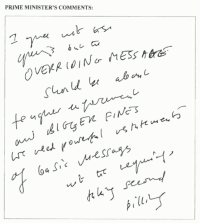 PRIME MINISTER'S COMMENTS:
I agree with
but the
OVERRIDING MESSAGE
should be about
tougher enforcement
and BIGGER FINES
we need powerful restatements
of basic message
with the
taking second
billing